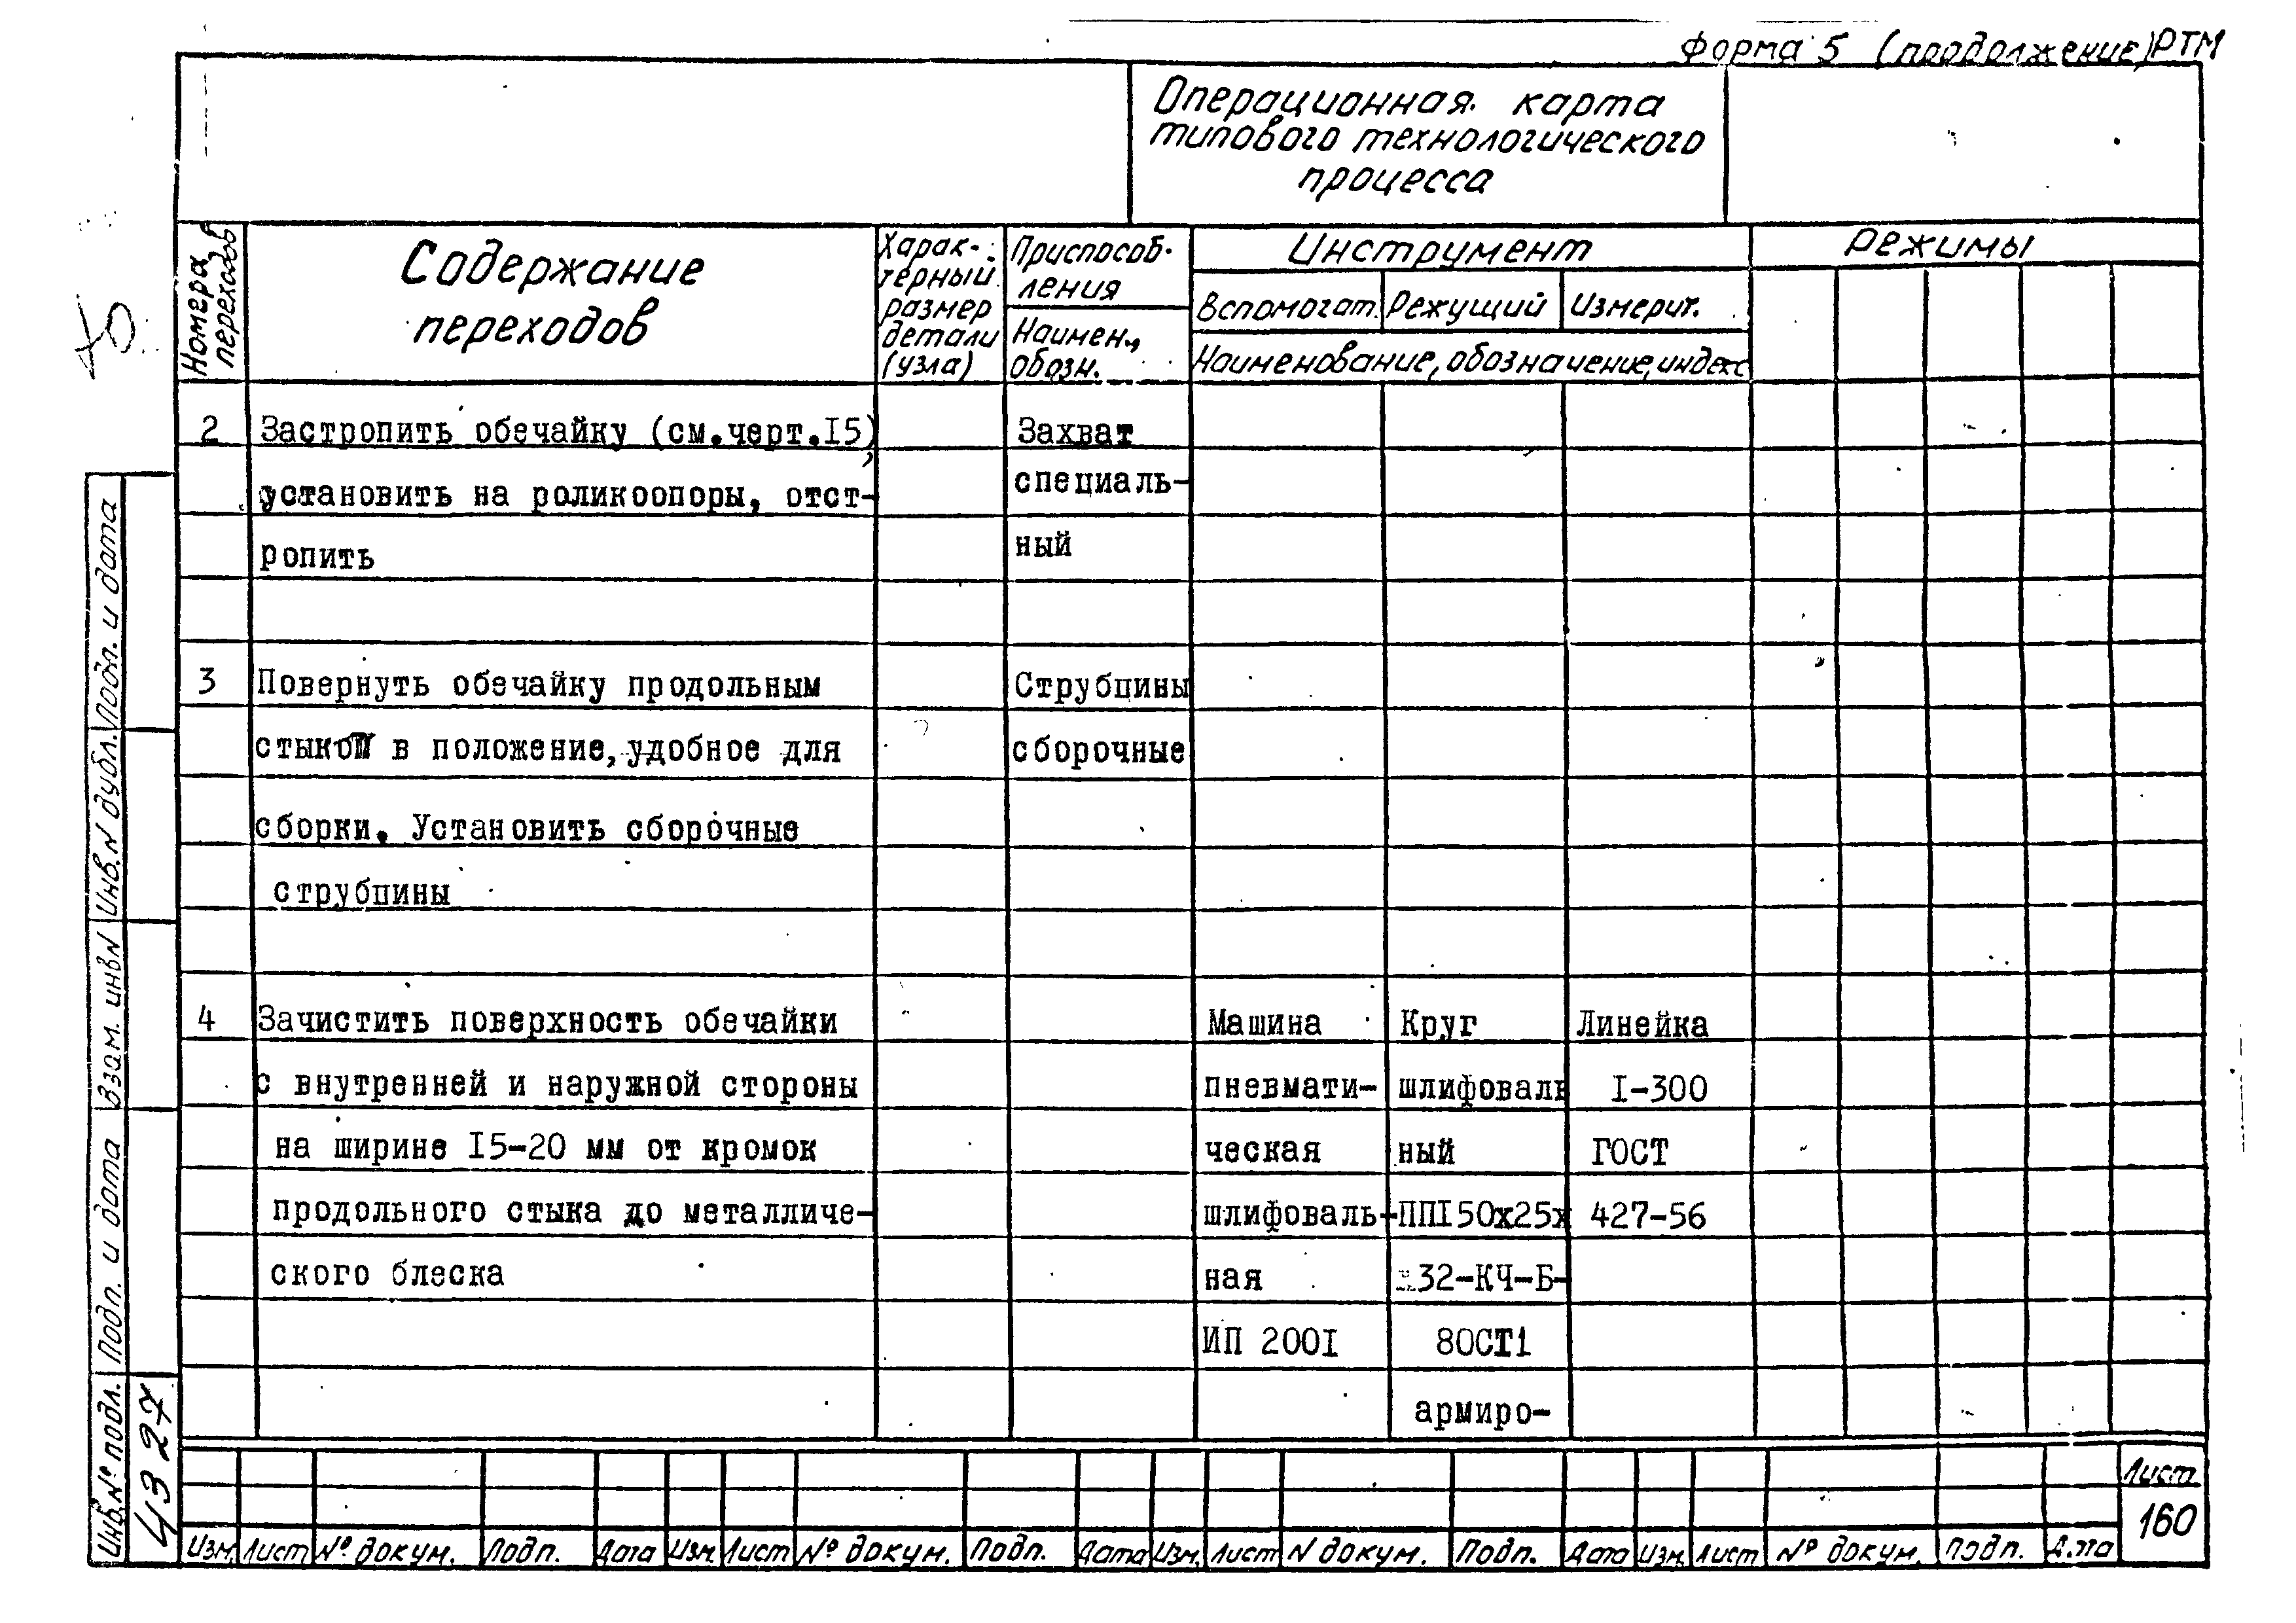 Форма 5 (продолжение) РТМ
Операционная карта
типового технологического
процесса
Номера
переходов
Содержание
переходов
Харак-
терный
размер
детали
(узла)
Приспособ-
ления
Наимен.,
обозн.
Инструмент
Вспомогат. Режущий Измерит.
Наименование, обозначение, индекс
Режимы
2 Застропить обечайку (см.черт.I5), Захват
установить на роликоопоры, отст- специаль-
ропить ный
3 Повернуть обечайку продольным Струбцины
стыком в положение, удобное для сборочные
сборки. Установить сборочные
струбцины
4 Зачистить поверхность обечайки Машина Круг Линейка
с внутренней и наружной стороны пневмати- шлифоваль I-300
на ширине I5-20 мм от кромок ческая ный ГОСТ
продольного стыка до металличе- шлифоваль- ППI50х25х 427-56
ского блеска ная 32-КЧ-Б-
ИП 200I 80СТ1
армиро-
Подп. и дата
Инв.N дубл.
Взам. инвN
Подп. и дата
Инв.№ подл.
4327
Изм. Лист № докум. Подп. Дата Изм. Лист № докум. Подп. Дата Изм. Лист N докум. Подп. Дата Изм. Лист № докум. Подп. Дата
Лист
160